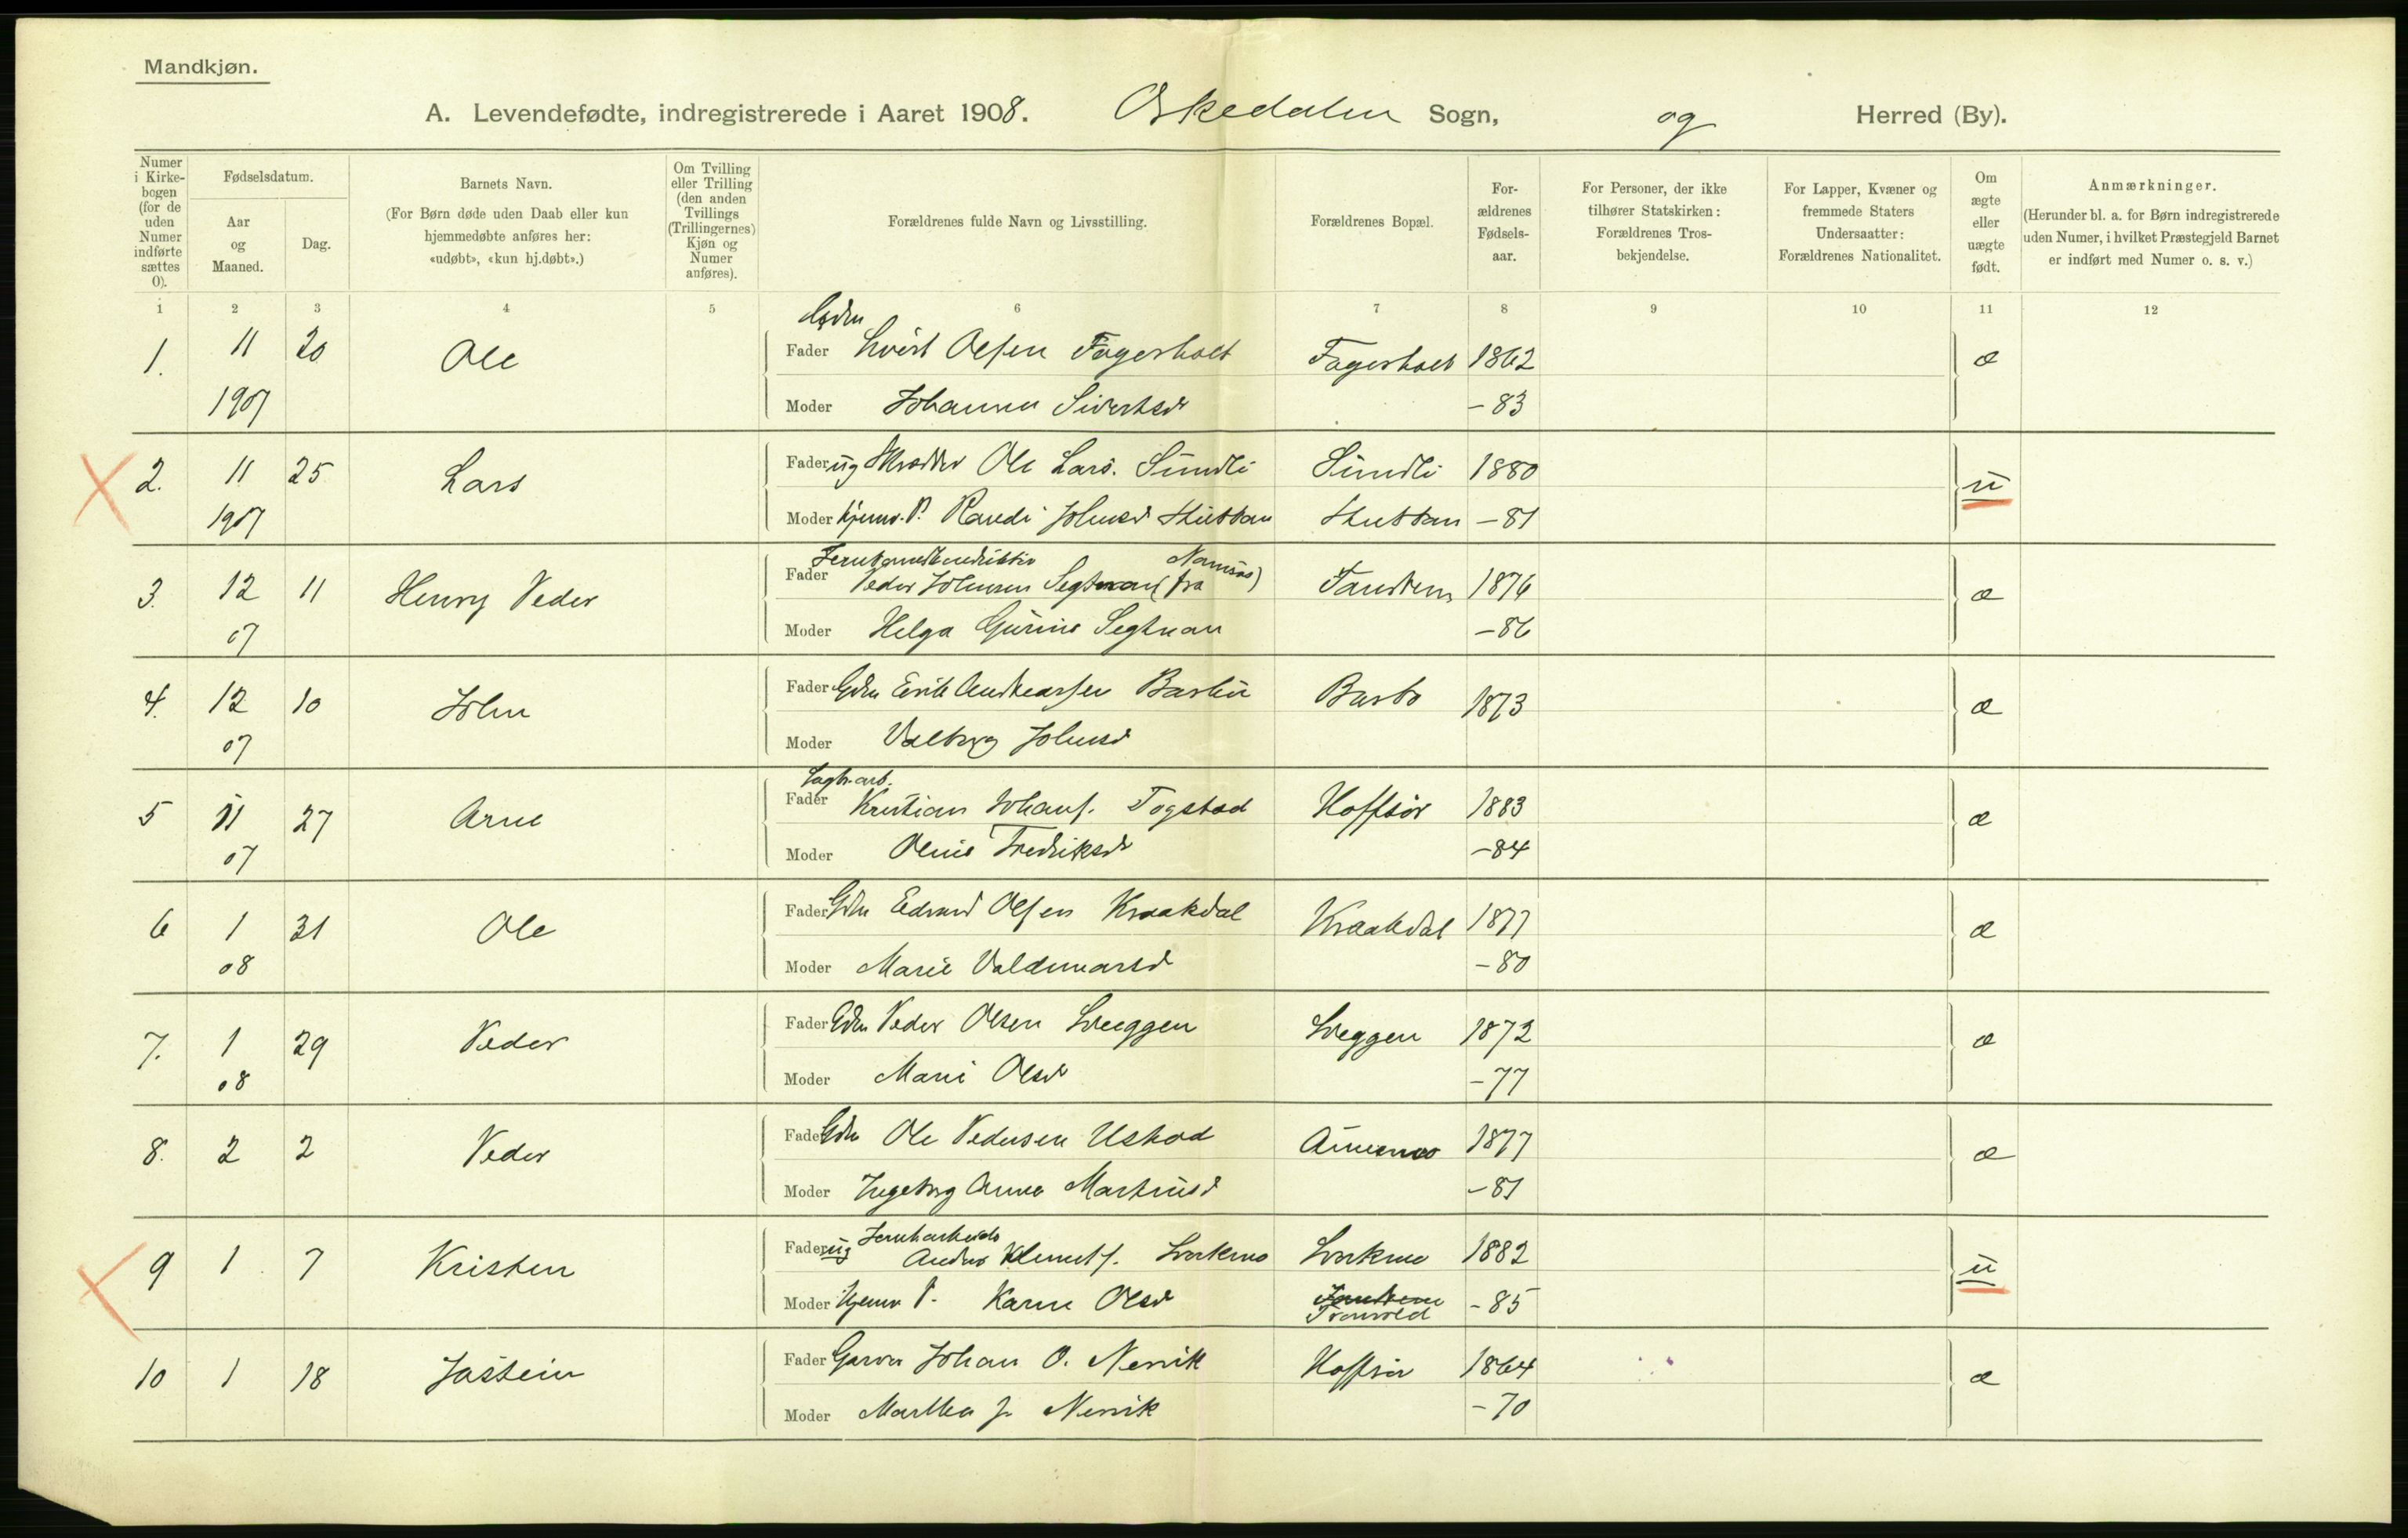 Mandkjøn.
A. Levendefødte, indregistrerede i Aaret 1908. Orkedalen Sogn, og Herred (By).
Numer i Kirkebogen (for de uden Numer indførte sættes 0).
Fødselsdatum.
Aar og Maaned.
Dag.
Barnets Navn.
(For Børn døde uden Daab eller kun hjemmedøbte anføres her: «udøbt», «kun hj.døbt».)
Om Tvilling eller Trilling (den anden Tvillings (Trillingernes) Kjøn og Numer anføres).
Forældrenes fulde Navn og Livsstilling.
Forældrenes Bopæl.
Forældrenes Fødselsaar.
For Personer, der ikke tilhører Statskirken: Forældrenes Trosbekjendelse.
For Lapper, Kvæner og fremmede Staters Undersaatter: Forældrenes Nationalitet.
Om ægte eller uægte født.
Anmærkninger.
(Herunder bl. a. for Børn indregistrerede uden Numer, i hvilket Præstegjeld Barnet er indført med Numer o. s. v.)
1 2 3 4 5 6 7 8 9 10 11 12
Gdm
1. 11 20 Ole Fader Sivert Olsen Fagerholt Fagerholt 1862 æ
1907 Moder Johanna Sivertsd -83
2. 11 25 Lars Fader ug Skrædder Ole Lars. Sundli Sundli 1880 u
1907 Moder hjemv. P. Randi Johnsd -81
Namsos)
3. 12 11 Henry Peder Fader Peder Johnsen Segtnan (fra 1876 æ
07 Moder Helga Gurine Segtnan -86
4. 12 10 John Fader Gdm Erik Andreassen 1873 æ
07 Moder Valborg Johnsd
Sagbr.arb.
5 11 27 Arne Fader Kristian Johans. Togstad 1883 æ
07 Moder Oline Fredriksd -84
6 1 31 Ole Fader Gdm Edvard Olsen Kraakdal Kraakdal 1877 æ
08 Moder Marie Valdemarsd -80
7. 1 29 Peder Fader Gdm Peder Olsen Sveggen Sveggen 1872 æ
08 Moder Marie Olsd -77
8. 2 2 Peder Fader Gdm Ole Pedersen Ustad 1877 æ
Moder Ingeborg Anna Martinsd -81
9 1 7 Kristen Fader ug Anders Klemets. Svorkmo Svorkmo 1882 u
Moder Hjemv P. Karen Olsd -85
10 1 18 Jostein Fader Garver Johan O. Nervik 1864 æ
Moder Martha J. Nervik -70